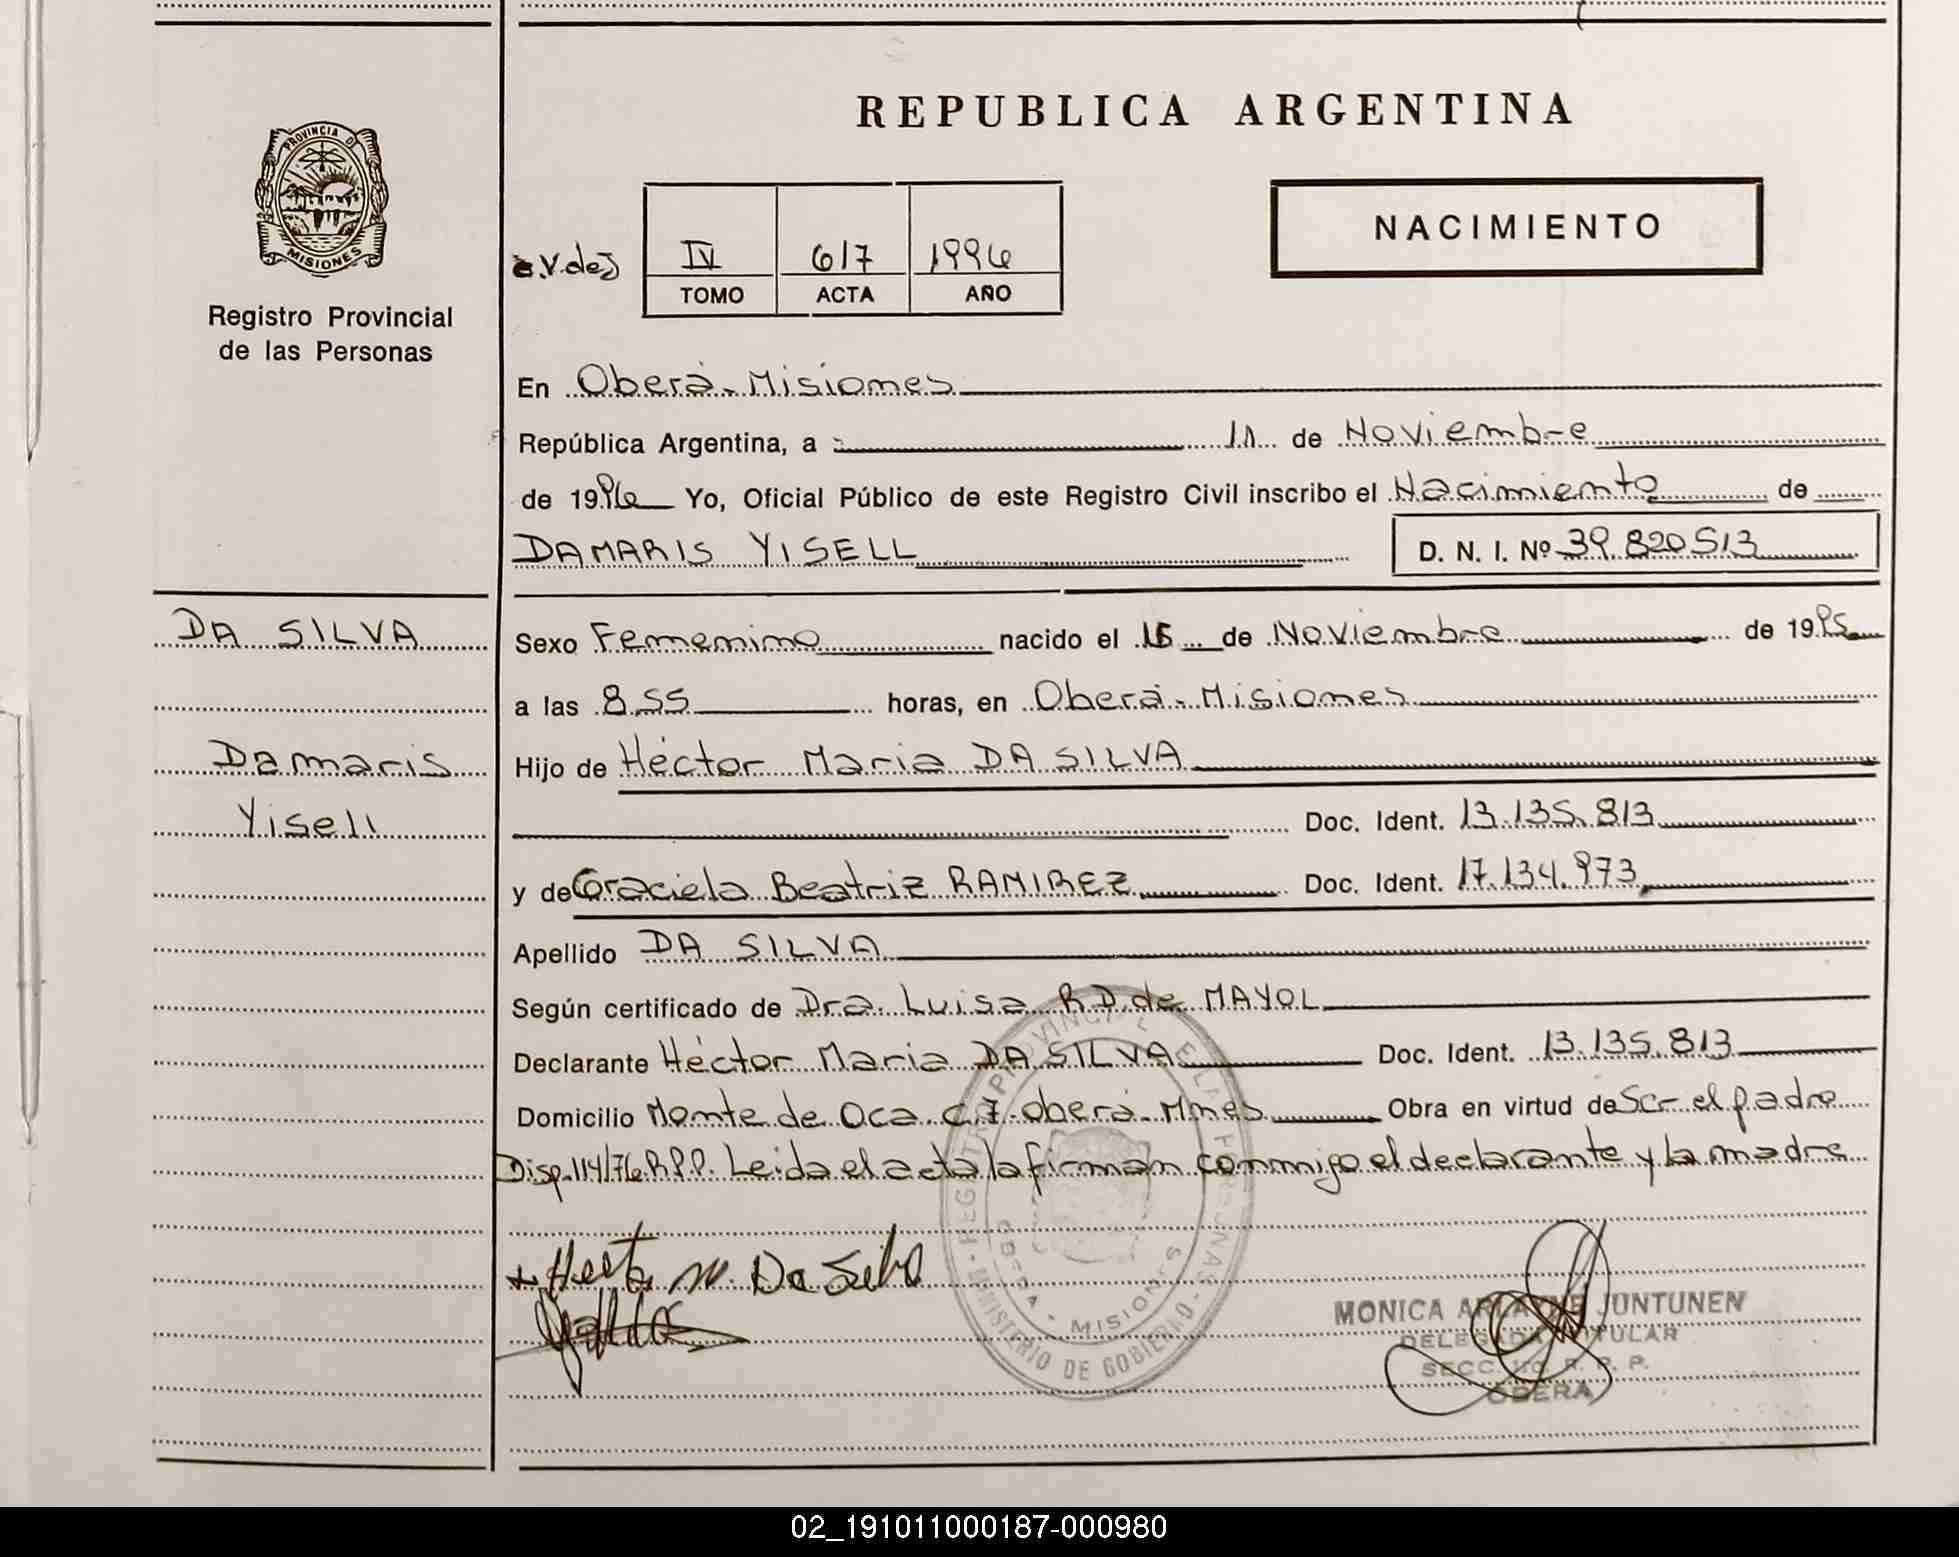 REPUBLICA ARGENTINA
PROVINCIA D
MISIONES
Registro Provincial
de las Personas
NACIMIENTO
IV 617 1996
TOMO ACTA AÑO
En Oberá-Misiones
República Argentina, a 11 de Noviembre
de 1996 Yo, Oficial Público de este Registro Civil inscribo el Nacimiento de
DAMARIS YISELL D. N. I. Nº 39.820513
DA SILVA
Damaris
Yisell
Sexo Femenino nacido el 15 de Noviembre de 1995
a las 8,55 horas, en Oberá-Misiones
Hijo de Héctor Maria DA SILVA
Doc. Ident. 13.135.813
y de Graciela Beatriz RAMIREZ Doc. Ident. 17.134.973
Apellido DA SILVA
Según certificado de Dra. Luisa R.D. de MAYOL
Declarante Héctor Maria DA SILVA Doc. Ident. 13.135.813
Domicilio Monte de Oca C.7-Oberá-Mnes Obra en virtud de Ser el padre
Disp.114/76.R.P.P. Leida el acta la firman conmigo el declarante y la madre
Hector M. Da Silva
REGISTRO PROVINCIAL DE LAS PERSONAS - MINISTERIO DE GOBIERNO
OBERA - MISIONES
MONICA JUNTUNEN
DELEGADA TITULAR
SECC. R. P. P.
OBERA
02_191011000187-000980